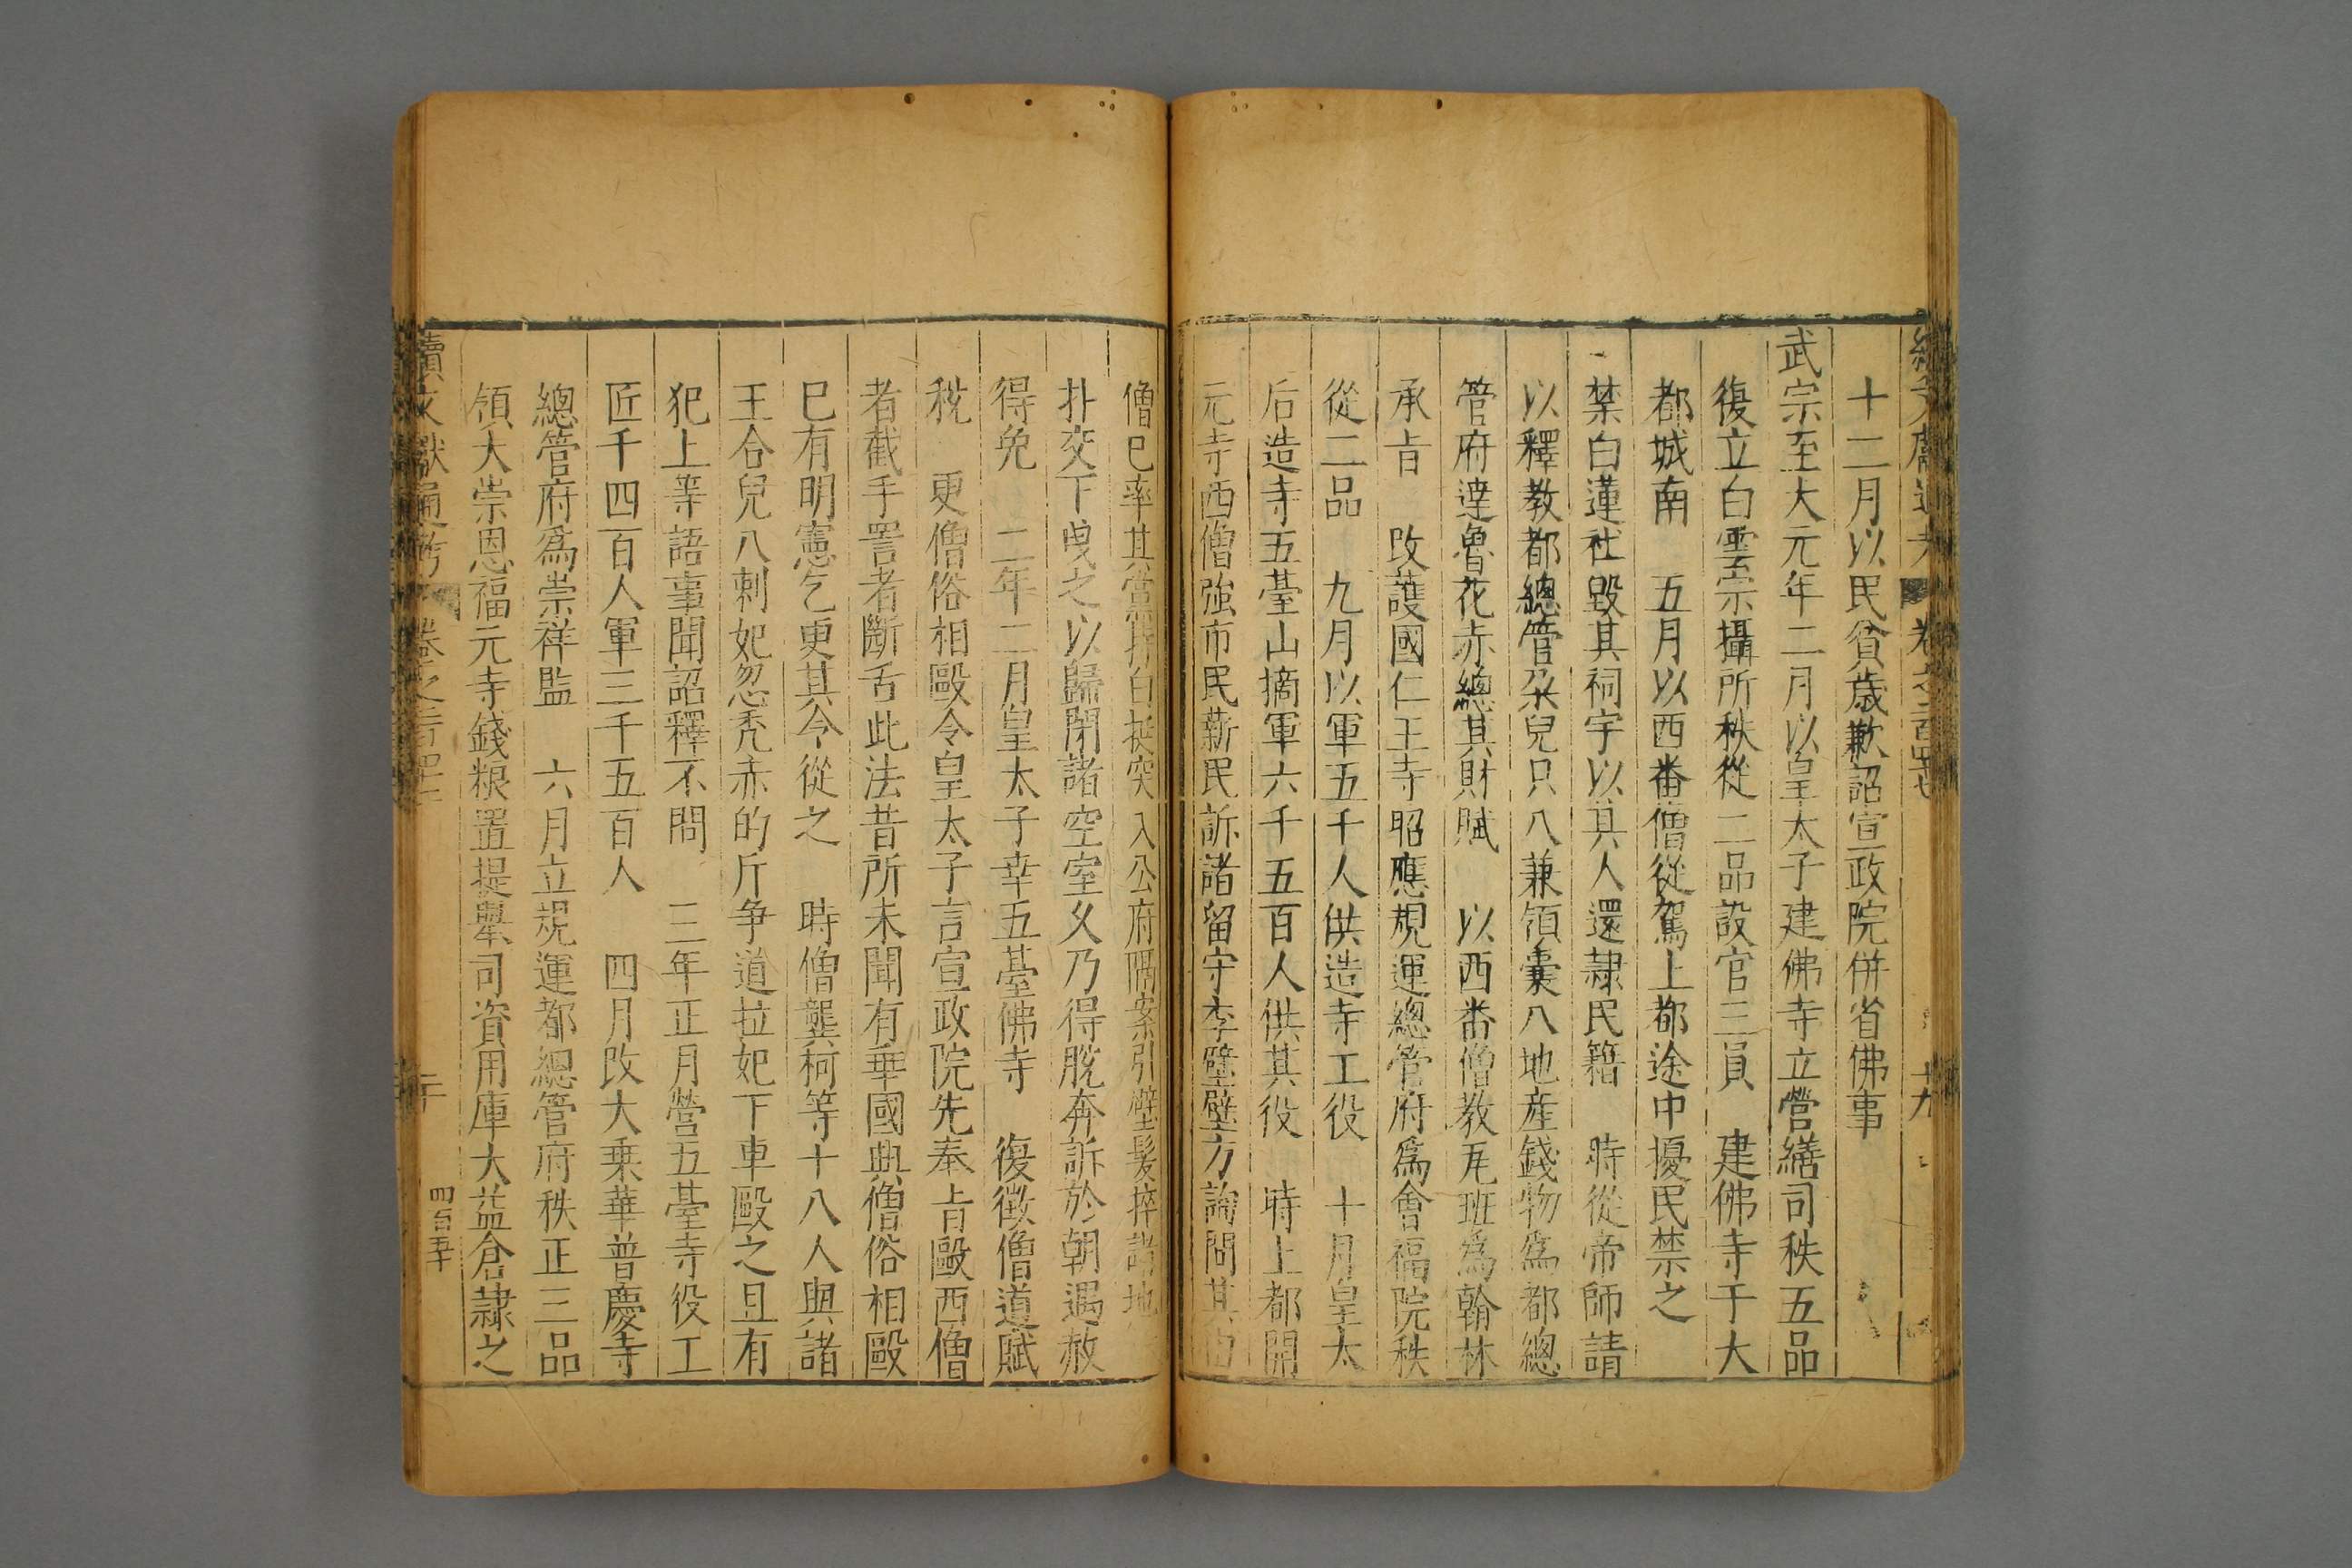 十二月以民貧歲歉詔宣政院併省佛事
武宗至大元年二月以皇太子建佛寺立營繕司秩五品
復立白雲宗攝所秩從二品設官三員 建佛寺于大
都城南 五月以西番僧從駕上都途中擾民禁之
禁白蓮社毀其祠宇以其人還隷民籍 時從帝師請
以釋教都總管朶兒只八兼領囊八地産錢物爲都總
管府達魯花赤總其財賦 以西番僧教瓦班爲翰林
承㫖 改護國仁王寺昭應規運總管府爲會福院秩
從二品 九月以軍五千人供造寺工役 十月皇太
后造寺五臺山摘軍六千五百人供其役 時上都開
元寺西僧強市民薪民訴諸留守李璧璧方詢問其由
僧已率其黨持白挺突入公府隔案引璧髮捽諸地
扑交下曳之以歸閉諸空室久乃得脫奔訴於朝遇赦
得免 二年二月皇太子幸五臺佛寺 復徵僧道賦
稅 更僧俗相毆令皇太子言宣政院先奉㫖毆西僧
者截手詈者斷舌此法昔所未聞有乖國典僧俗相毆
已有明憲乞更其令從之 時僧龔柯等十八人與諸
王合兒八剌妃忽禿赤的斤争道拉妃下車毆之且有
犯上等語事聞詔釋不問 三年正月營五臺寺役工
匠千四百人軍三千五百人 四月改大乗華普慶寺
總管府爲崇祥監 六月立規運都總管府秩正三品
領大崇恩福元寺錢粮置提舉司資用庫大益倉隷之
續文獻通考 卷之二百四十七 二十 四百五十